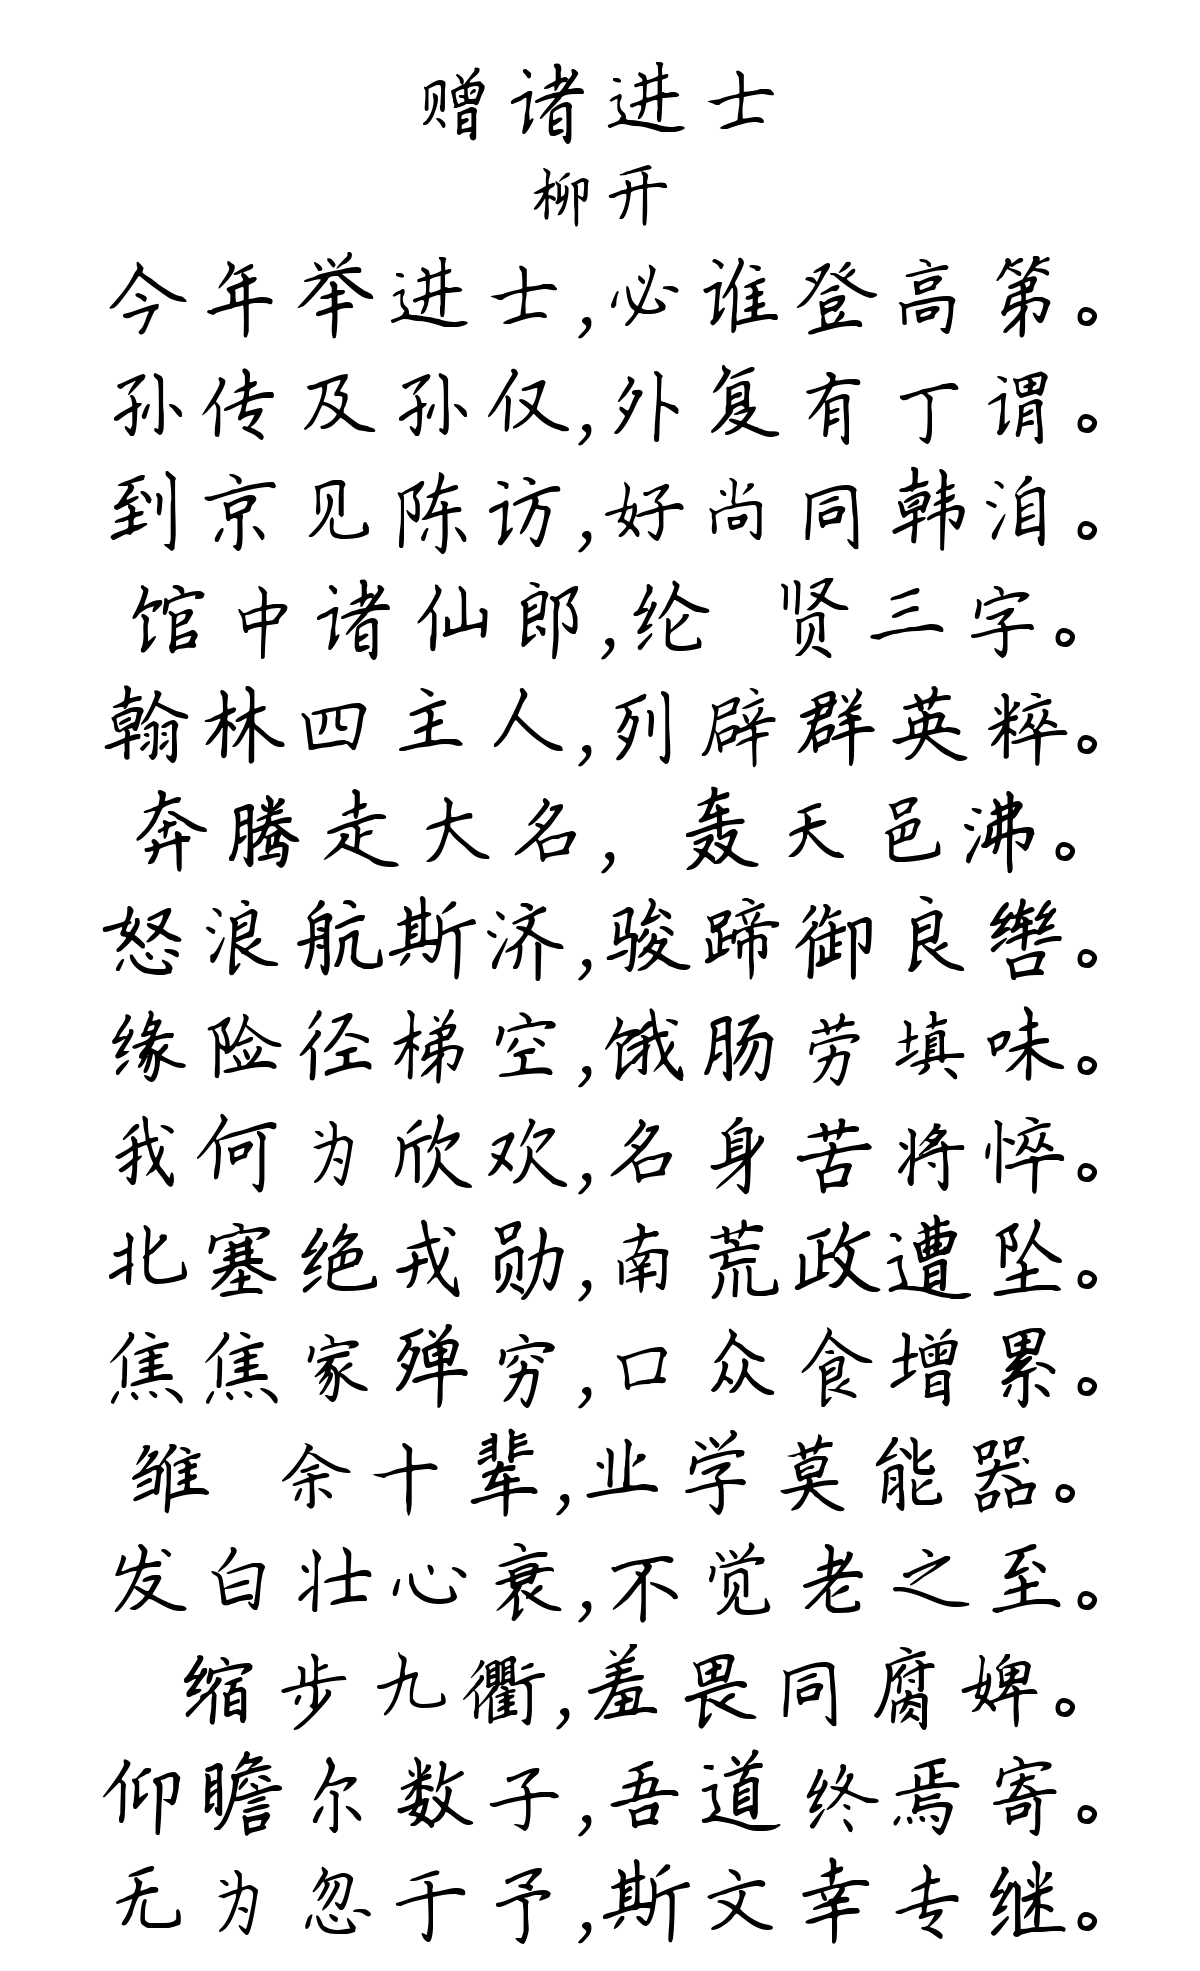 赠诸进士
柳开
今年举进士,必谁登高第。
孙传及孙仅,外复有丁谓。
到京见陈访,好尚同韩洎。
馆中诸仙郎,纶 贤三字。
翰林四主人,列辟群英粹。
奔腾走大名, 轰天邑沸。
怒浪航斯济,骏蹄御良辔。
缘险径梯空,饿肠劳填味。
我何为欣欢,名身苦将悴。
北塞绝戎勋,南荒政遭坠。
焦焦家殚穷,口众食增累。
雏 余十辈,业学莫能器。
发白壮心衰,不觉老之至。
缩步九衢,羞畏同腐婢。
仰瞻尔数子,吾道终焉寄。
无为忽于予,斯文幸专继。